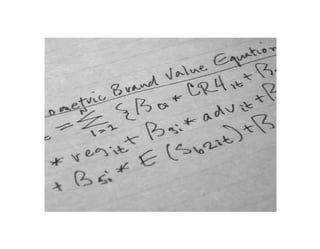 ometric Brand Value Equation
= N Σ i=1 {B0i * CR4it + B
* regit + B3i * advit + B
+ B5i * E (Sb2it) + B